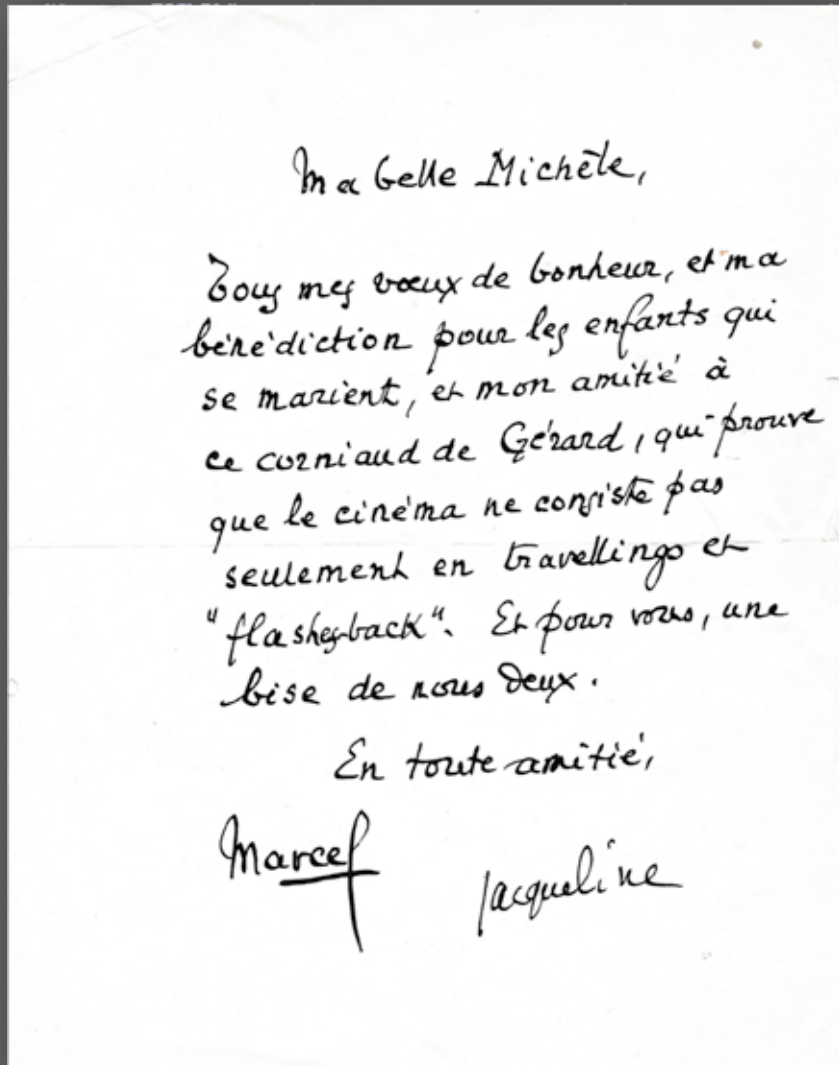 Ma belle Michèle,
Tous mes vœux de bonheur, et ma
bénédiction pour les enfants qui
se marient, et mon amitié à
ce corniaud de Gérard, qui prouve
que le cinéma ne consiste pas
seulement en travellings et
"flashes-back". Et pour vous, une
bise de nous deux.
En toute amitié,
Marcel
Jacqueline